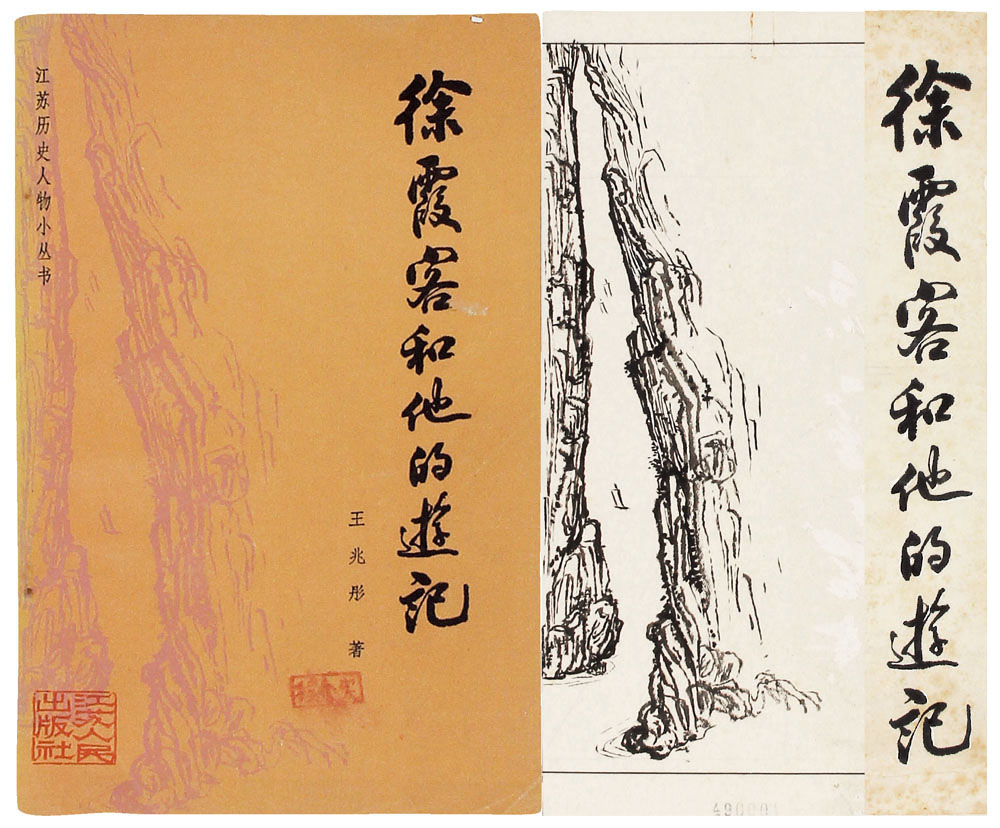 江苏历史人物小丛书
徐霞客和他的遊记
王兆彤 著
江苏人民
出版社
徐霞客和他的遊记